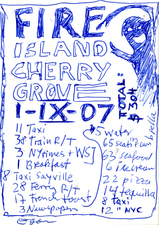 FIRE
ISLAND
CHERRY
GROVE
1-IX-07
TOTAL:
$304
11 Taxi
38 Train R/T
3 NYTimes + WSJ
1 Breakfast
8 Taxi Sayville
28 Ferry R/T
17 french toast
3 Newspapers
5 water
65 seat/pam
63 seafood
6 icecream
22 pizza
14 tequilla
8 taxi
12 " NYC